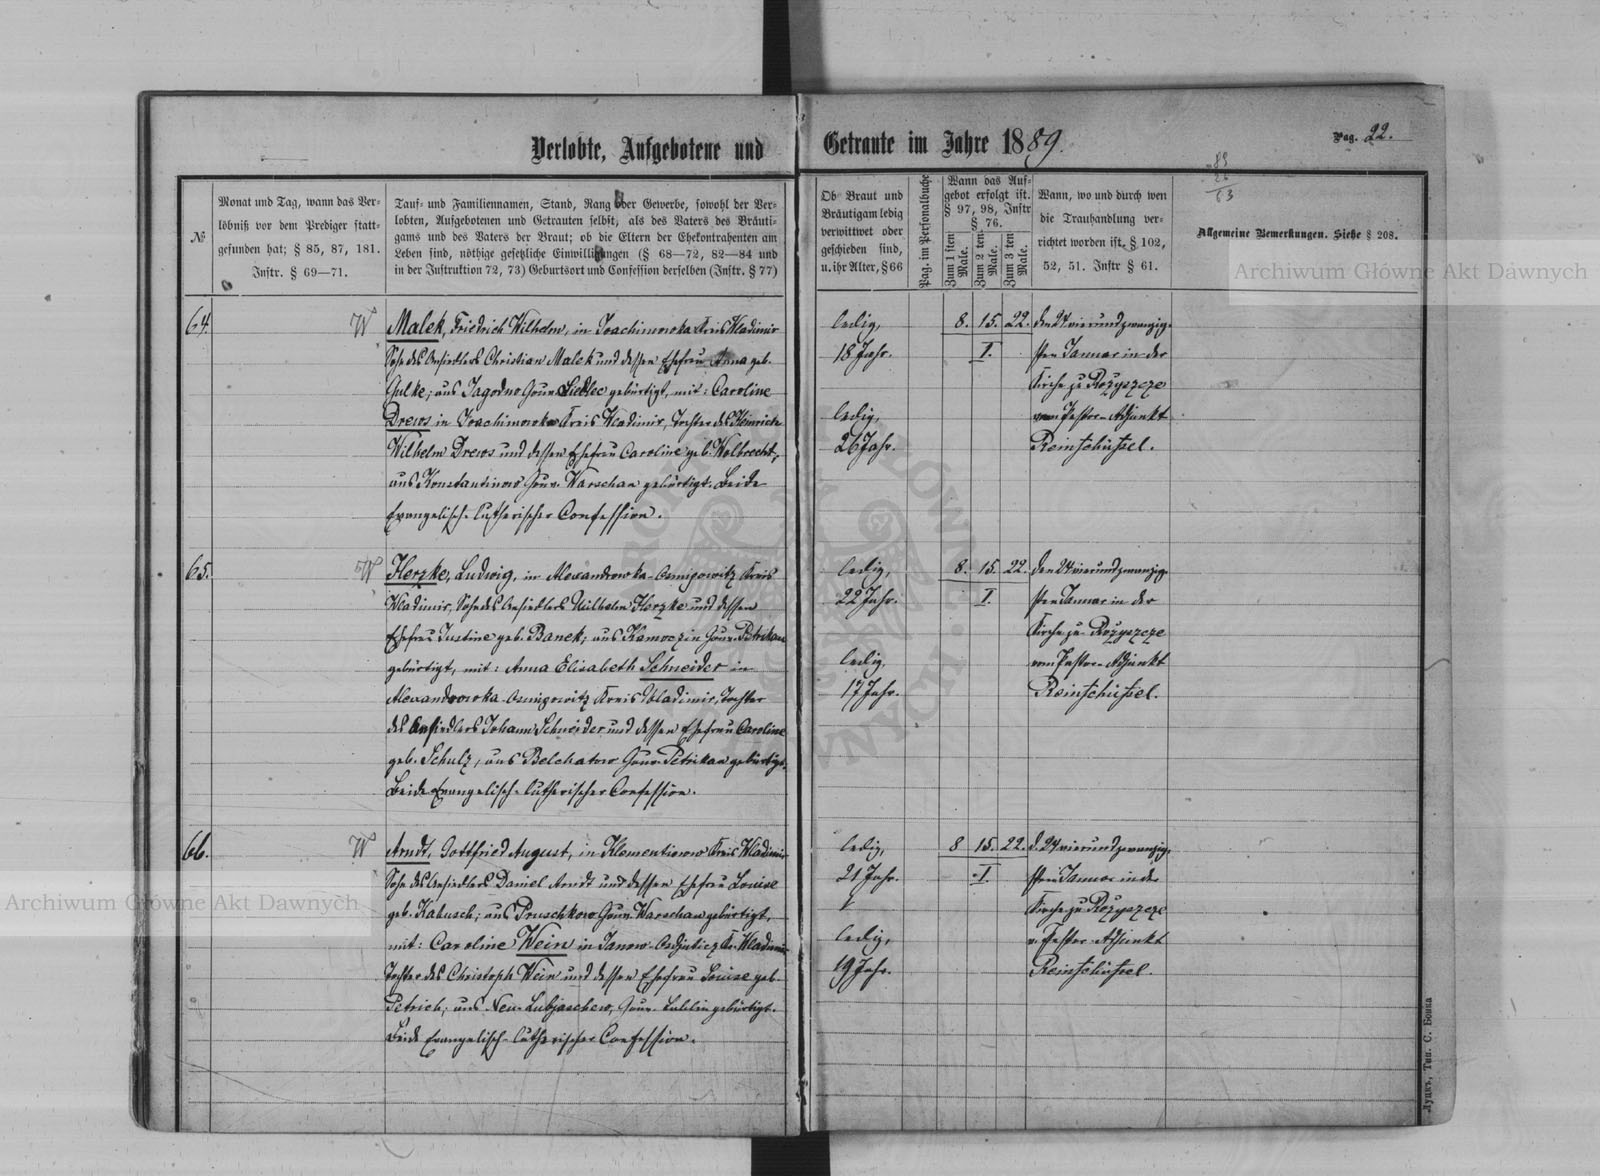 Verlobte, Aufgebotene und Getraute im Jahre 1889.
Pag. 22.
№
Monat und Tag, wann das Ver-
löbniß vor dem Prediger statt-
gefunden hat; § 85, 87, 181.
Instr. § 69—71.
Tauf- und Familiennamen, Stand, Rang oder Gewerbe, sowohl der Ver-
lobten, Aufgebotenen und Getrauten selbst, als des Vaters des Bräuti-
gams und des Vaters der Braut; ob die Eltern der Ehekontrahenten am
Leben sind, nöthige gesetzliche Einwilligungen (§ 68—72, 82—84 und
in der Instruktion 72, 73) Geburtsort und Confession derselben (Instr. § 77)
Ob Braut und
Bräutigam ledig
verwittwet oder
geschieden sind,
u. ihr Alter, § 66
Pag. im Personalbuche
Wann das Auf-
gebot erfolgt ist.
§ 97, 98, Instr
§ 76.
Zum 1 iten Male.
Zum 2 ten Male.
Zum 3 ten Male.
Wann, wo und durch wen
die Trauhandlung ver-
richtet worden ist. § 102,
52, 51. Instr § 61.
Allgemeine Bemerkungen. Siehe § 208.
64.
W
Malek, Friedrich Wilhelm, in Joachimowka Kreis Wladimir
Sohn des Ansiedlers Christian Malek und dessen Ehefrau Anna geb.
Gulke, aus Jagodno Gouv. Siedlec gebürtigt, mit: Caroline
Drews in Joachimowka Kreis Wladimir, Tochter des Heinrich
Wilhelm Drews und dessen Ehefrau Caroline geb. Wolbrecht,
aus Konstantinow Gouv. Warschau gebürtigt. Beide
Evangelisch-lutherischer Confession.
ledig,
18 Jahr.
ledig,
26 Jahr.
8. 15. 22.
I.
den 24 vierundzwanzig-
sten Januar in der
Kirche zu Rożyszcze
vom Pastor-Adjunkt
Reinschüssel.
65.
W
Herzke, Ludwig, in Alexandrowka-Osmigowitz Kreis
Wladimir, Sohn des Ansiedlers Wilhelm Herzke und dessen
Ehefrau Justine geb. Banek, aus Kamoczin Gouv. Petrikau
gebürtigt, mit: Anna Elisabeth Schneider in
Alexandrowka-Osmigowitz Kreis Wladimir, Tochter
des Ansiedlers Johann Schneider und dessen Ehefrau Caroline
geb. Schulz, aus Belchatow Gouv. Petrikau gebürtigt.
Beide Evangelisch-lutherischer Confession.
ledig,
22 Jahr.
ledig,
17 Jahr.
8. 15. 22.
I.
den 24 vierundzwanzig-
sten Januar in der
Kirche zu Rożyszcze
vom Pastor-Adjunkt
Reinschüssel.
66.
W
Arndt, Gottfried August, in Klementiowo Kreis Wladimir
Sohn des Ansiedlers Daniel Arndt und dessen Ehefrau Louise
geb. Kabusch, aus Pruschkow Gouv. Warschau gebürtigt,
mit: Caroline Wein in Janow- Kr. Wladimir
Tochter des Christoph Wein und dessen Ehefrau Louise geb.
Petrich, aus Neu-Lubjaschew, Gouv. Lublin gebürtigt.
Beide Evangelisch-lutherischer Confession.
ledig,
21 Jahr.
ledig,
19 Jahr.
8 15. 22.
I.
d. 24 vierundzwanzig-
sten Januar in der
Kirche zu Rożyszcze
v. Pastor-Adjunkt
Reinschüssel.
Луцкъ, Тип. С. Бонка
Archiwum Główne Akt Dawnych
Archiwum Główne Akt Dawnych